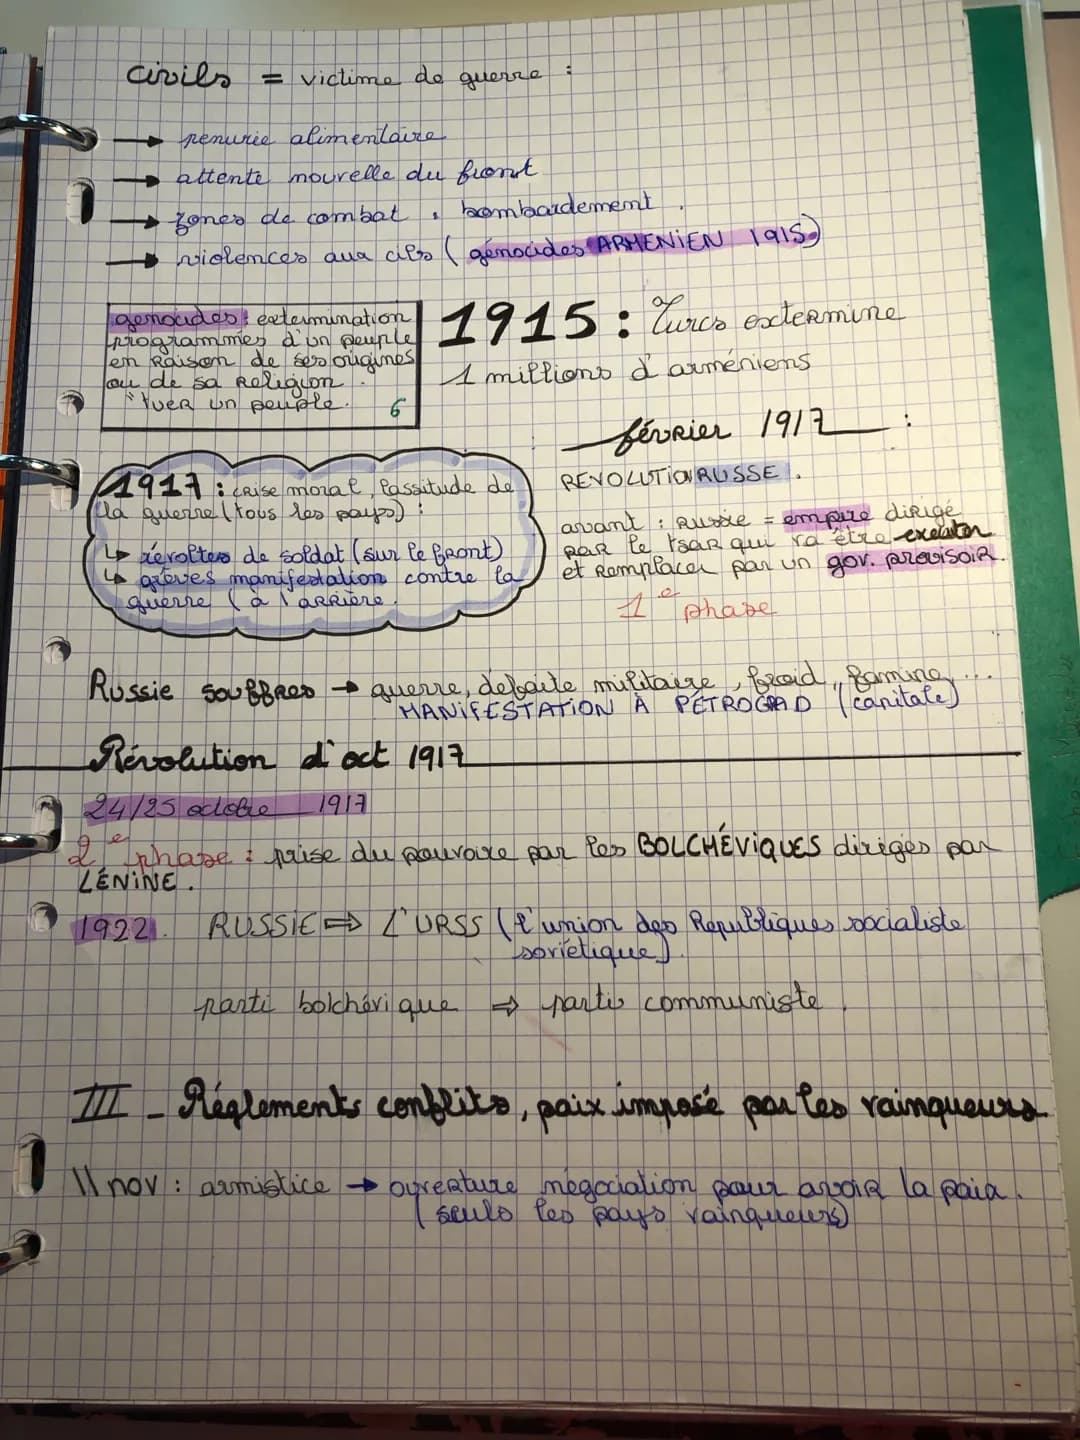 civils = victime de guerre :
→ penurie alimentaire
→ attente nouvelle du front
→ zones de combat, bombardement.
→ violences aux cils (génocides ARMENIEN 1915)
genocides : extermination
programmées d'un peuple
en raison de ses origines
ou de sa religion.
"tuer un peuple.
6
1915 : Turcs extermine
1 millions d'arméniens
février 1917 :
REVOLUTION RUSSE.
avant : Russie = empire dirigé
par le tsar qui va être executer
et remplacer par un gov. provisoir.
1e phase
1917 : crise moral, lassitude de
la guerre (tous les pays) :
↳ révoltes de soldat (sur le front)
↳ grèves manifestation contre la
guerre (à l'arrière.
Russie souffres → guerre, defaite militaire, froid, famine....
MANIFESTATION À PÉTROGRAD (capitale)
Révolution d'oct 1917
24/25 octobre 1917
2e phase : prise du pouvoire par les BOLCHÉVIQUES dirigés par
LÉNINE.
1922. RUSSIE ⇒ L'URSS (l'union des Republiques socialiste
soviétique).
parti bolchévique ⇒ partis communiste.
III - Réglements conflits, paix imposé par les vainqueurs
11 nov : armistice → ouverture négociation pour avoir la paix.
(seuls les pays vainqueurs)